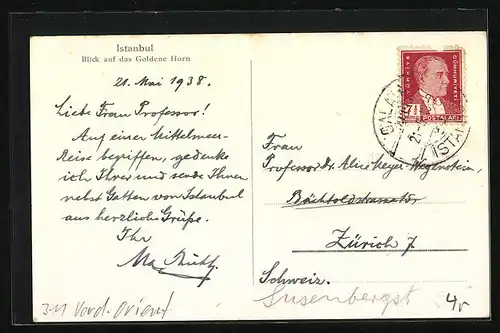 Istanbul
Blick auf das Goldene Horn
21. Mai 1938.
Liebe Frau Professor!
Auf einer Mittelmeer-
Reise begriffen, gedenke
ich Ihrer und sende Ihnen
nebst Gatten von Istanbul
aus herzliche Grüße.
Ihr
TÜRKİYE
CÜMHURİYETİ
POSTALARI
GALATA
ISTAN
Frau
Professor Dr. Alice Meyer-Wegenstein,
Bächtoldstrasse 15
Zürich 7
Schweiz.
Susenbergst
311 Vord. Orient